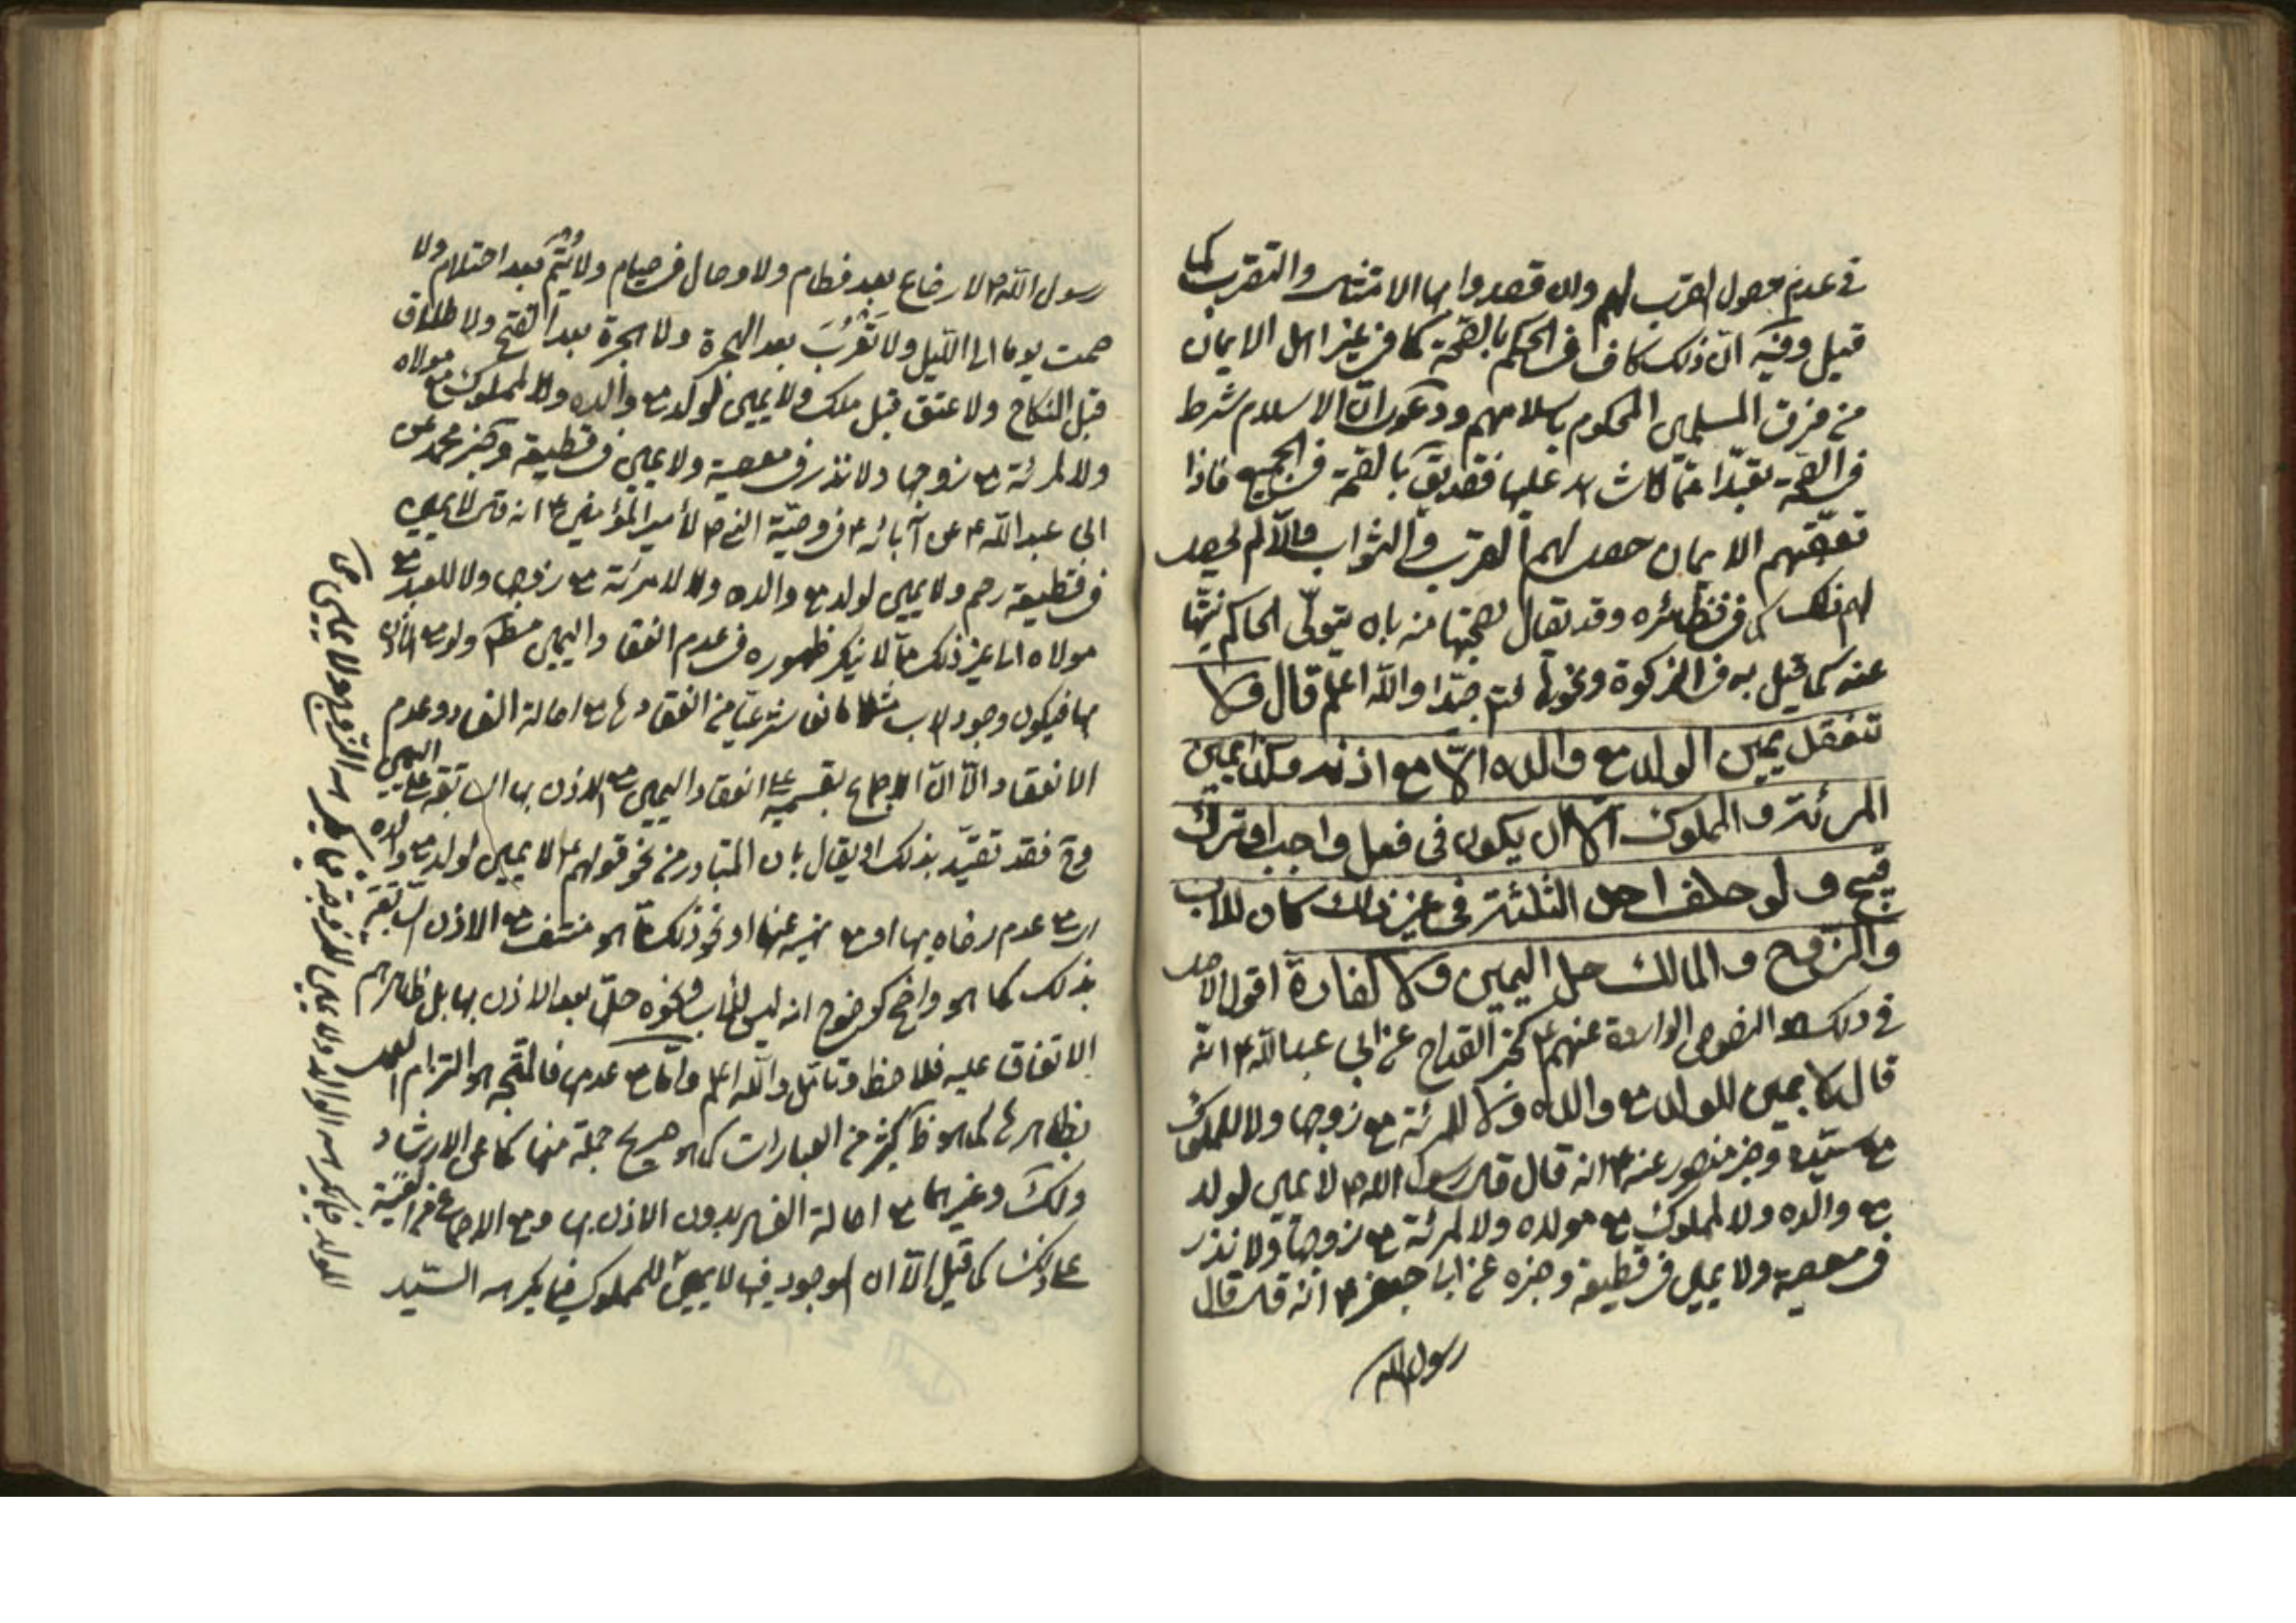 في عدم حصول القرب لهم وان قصدوا بها الامتثال والتقرب كما
قيل وفيه ان ذلك كاف في الحكم بالصحة كما في غير اهل الايمان
من فرق المسلمين المحكوم باسلامهم ودعوى ان الاسلام شرط
في الصحة تعبدا مما لا شاهد عليها فتصديق بالصحة في الجميع فاذا
تعقبهم الايمان حصل لهم القرب والثواب والا لم يحصل
لهم ذلك كما في نظائره وقد يقال بصحتها منه بان يتولى الحاكم نيتها
عنه كما قيل به في الزكوة ونحوها جدا والله اعلم قال ولا
تنعقد يمين الولد مع والده الا مع اذنه وكذا يمين
المرئة والمملوك الا ان يكون في فعل واجب او ترك
قبيح ولو حلف احد الثلثة في غير ذلك كان للاب
والزوج والمالك حل اليمين ولا كفارة اقول الاصل
في ذلك النصوص الواردة عنهم ع كخبر القداح عن ابي عبد الله ع انه
قال لا يمين للولد مع والده ولا للمرئة مع زوجها ولا للمملوك
مع سيده وخبر منصور عنه ع انه قال قال رسول الله ص لا يمين لولد
مع والده ولا لمملوك مع مولاه ولا لمرئة مع زوجها ولا نذر
في معصية ولا يمين في قطيعة وخبره عن ابي جعفر ع انه قال قال
رسول الله
رسول الله ص لا رضاع بعد فطام ولا وصال في صيام ولا يُتم بعد احتلام ولا
صمت يوما الى الليل ولا تعرب بعد الهجرة ولا هجرة بعد الفتح ولا طلاق
قبل النكاح ولا عتق قبل ملك ولا يمين لولد مع والده ولا لمملوك مع مولاه
ولا لمرئة مع زوجها ولا نذر في معصية ولا يمين في قطيعة وخبر محمد عن
ابي عبد الله ع عن آبائه ع في وصية النبي ص لأمير المؤمنين ع انه قال لا يمين
في قطيعة رحم ولا يمين لولد مع والده ولا لامرئة مع زوجها ولا للعبد مع
مولاه الى غير ذلك مما لا ينكر ظهوره في عدم انعقاد اليمين مطلقا ولو مع الاذن
بها فيكون وجود الاب مثلا مانعا شرعيا من انعقادها مع اصالة الفساد وعدم
الانعقاد الا ان الاجماع بقسميه على انعقاد اليمين مع الاذن بها السابقة على اليمين
وح فقد تقيد بذلك او يقال بان المتبادر من نحو قولهم ع لا يمين لولد مع والده
اي مع عدم رضاه بها او مع نهيه عنها او نحو ذلك مما هو منتف مع الاذن السابقة
بذلك كما هو واضح كوضوح انه ليس للاب ونحوه حل بعد الاذن بها بل ظاهرهم
الاتفاق عليه فلاحظ وتامل والله اعلم واما مع عدمها فالمتجه هو التزام العمل
بظاهرها كما هو ظاهر كثير من العبارات كما هو صريح جملة منها كما عن الارشاد
ولك وغيرهما مع اصالة الفساد بدون الاذن بها ومع الاجماع عن الغنية
على ذلك كما قيل الا ان الموجود فيها لا يمين للمملوك فيما يكرهه السيد